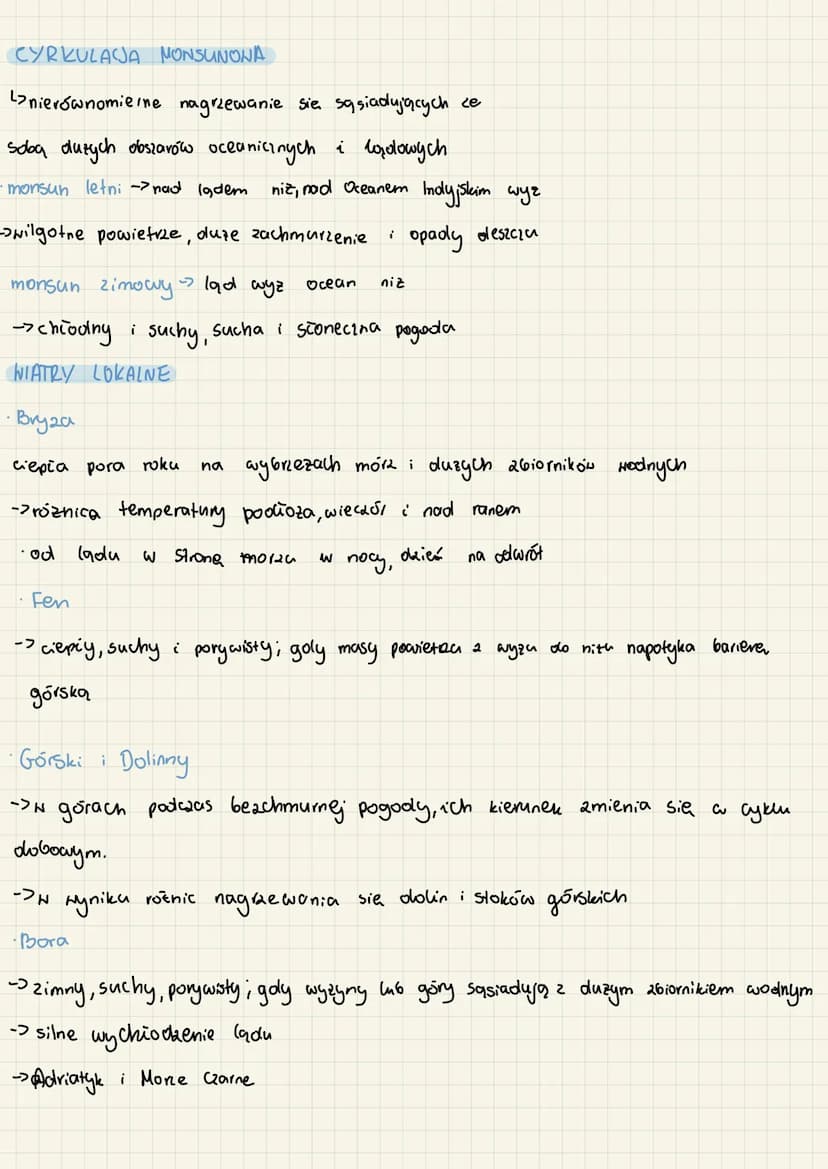 CYRKULACJA MONSUNOWA
↳nierównomierne nagrzewanie się sąsiadujących ze
sobą dużych obszarów oceanicznych i lądowych
·monsun letni -> nad lądem niż, nad Oceanem Indyjskim wyż
->wilgotne powietrze, duże zachmurzenie i opady deszczu
monsun zimowy -> ląd wyż ocean niż
->chłodny i suchy, sucha i słoneczna pogoda
WIATRY LOKALNE
·Bryza
ciepła pora roku na wybrzeżach mórz i dużych zbiorników wodnych
->różnica temperatury podłoża, wieczór i nad ranem
·od lądu w stronę morza w nocy, dzień na odwrót
·Fen
-> ciepły, suchy i porywisty; gdy masy powietrza z wyżu do niżu napotyka barierę
górską
·Górski i Dolinny
->W górach podczas bezchmurnej pogody, ich kierunek zmienia się w cyklu
dobowym.
->W wyniku różnic nagrzewania się dolin i stoków górskich
·Bora
->zimny, suchy, porywisty; gdy wyżyny lub góry sąsiadują z dużym zbiornikiem wodnym
-> silne wychłodzenie lądu
->Adriatyk i Morze Czarne